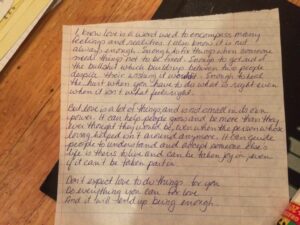 I know love is a word used to encompass many
feelings and realities. I also know it is not
always enough. Enough to fix things when someone
need things not to be fixed. Enough to get rid of
the bullshit which builds up between two people
despite their wishing it wouldn't. Enough to heal
the hurt when you have to do what is right even
when it isn't what feels right.
But love is a lot of things and is not erased in its own
power. It can help people grow and be more than they
ever thought they would be, even when the person whose
loving helped isn't around anymore. It can guide
people to understand and accept someone else's
life is theirs to live and can be taken joy in even
if it can't be taken part in.
Don't expect love to do things for you
Be everything you can for love
And it will end up being enough.